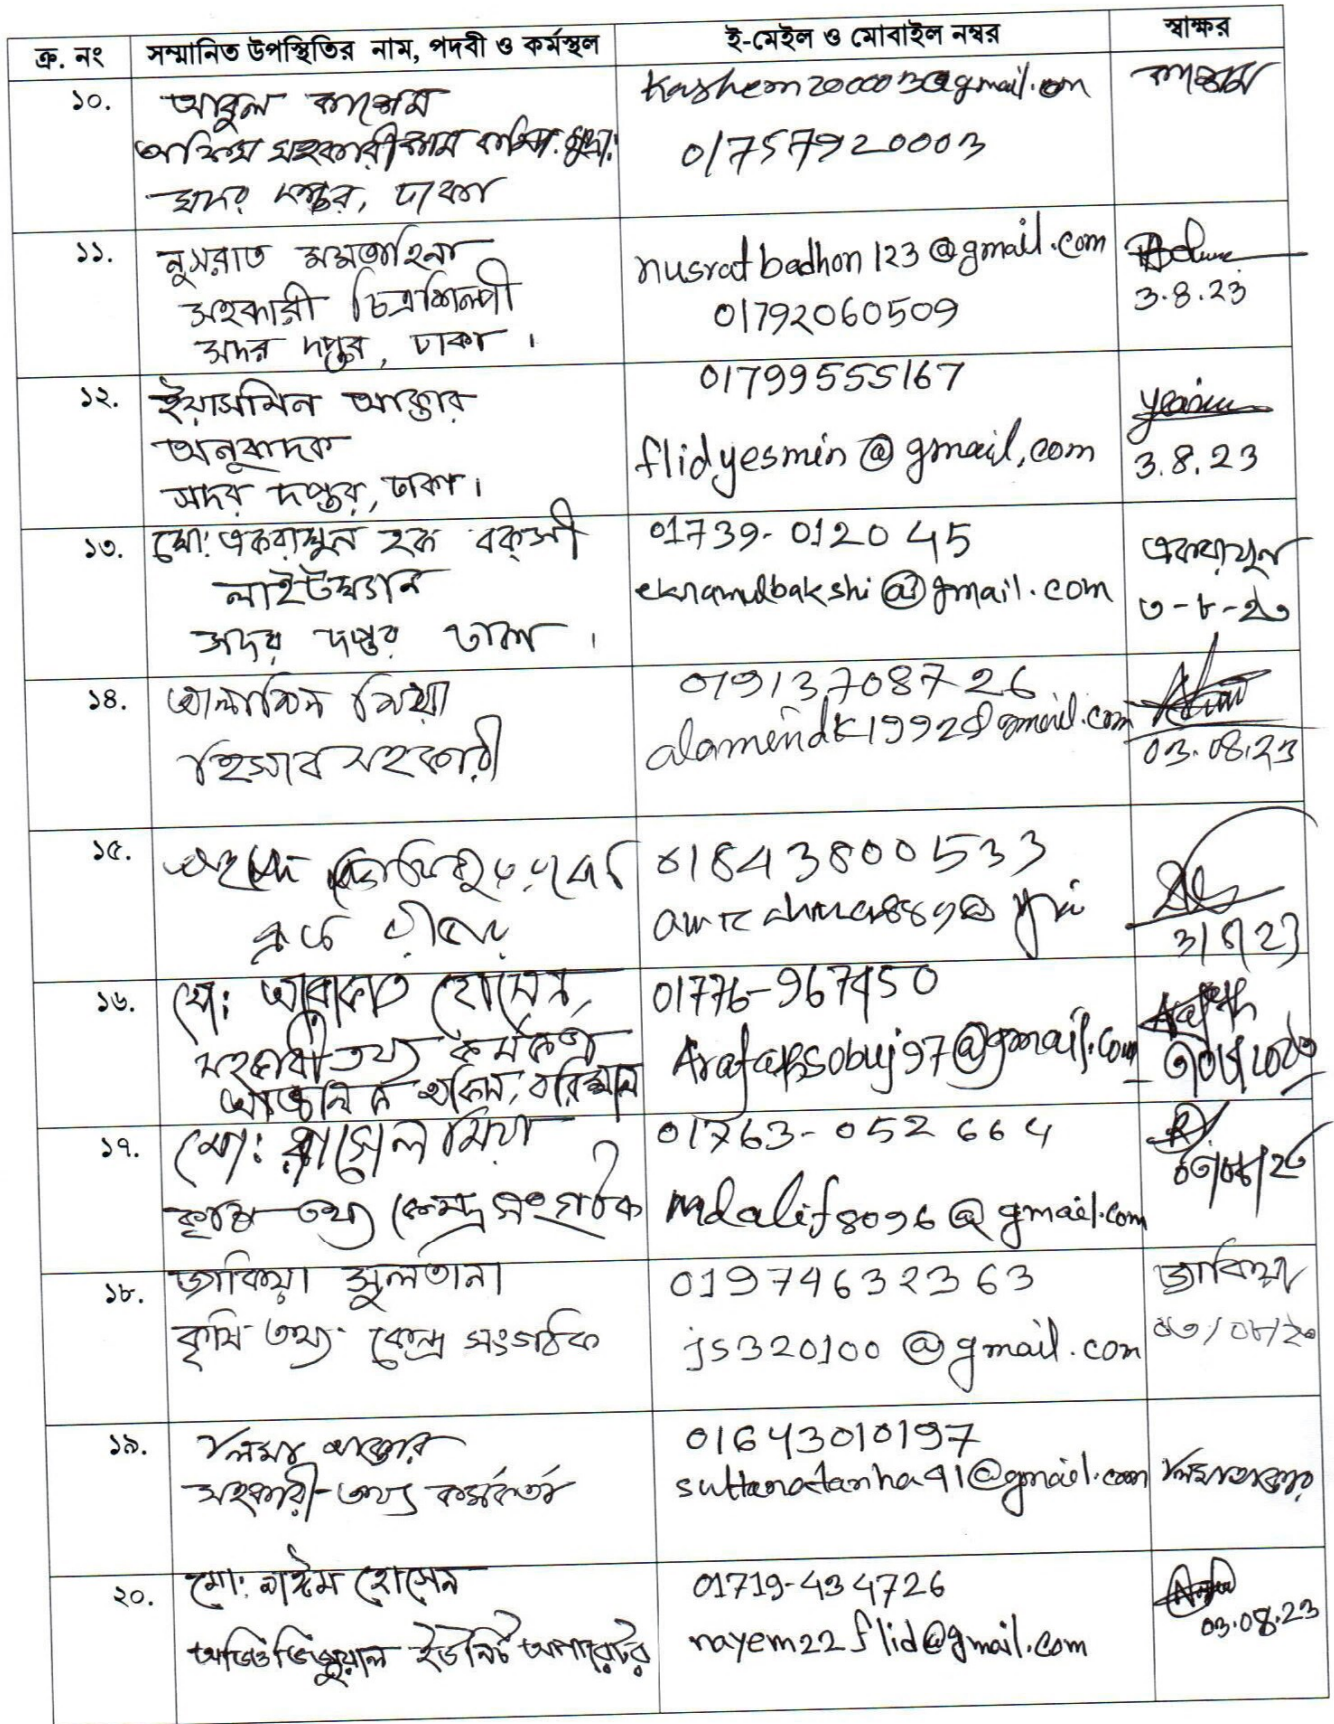 ক্র. নং সম্মানিত উপস্থিতির নাম, পদবী ও কর্মস্থল ই-মেইল ও মোবাইল নম্বর স্বাক্ষর
১০. আবুল কাশেম
অফিস সহকারী কাম কম্পি: মুদ্রা:
সদর দপ্তর, ঢাকা
kashem200003@gmail.com
01757920003
কাশেম
১১. নুসরাত মমতাহিনা
সহকারী চিত্রশিল্পী
সদর দপ্তর, ঢাকা ।
nusratbadhon123@gmail.com
01792060509
3.8.23
১২. ইয়াসমিন আক্তার
অনুবাদক
সদর দপ্তর, ঢাকা ।
01799555167
flidyesmin@gmail.com
3.8.23
১৩. মো: একরামুল হক বক্সী
লাইটম্যান
সদর দপ্তর ঢাকা ।
01739-012045
ekramulbakshi@gmail.com
একরামুল
৩-৮-২৩
১৪. আলামিন মিয়া
হিসাব সহকারী
01913708726
alamindk1992@gmail.com
03.08.23
১৫.
01843800533
3/8/23
১৬. মো: আরাফাত হোসেন,
সহকারী তথ্য কর্মকর্তা
আঞ্চলিক অফিস, বরিশাল
01776-967450
১৭. মো: রাসেল মিয়া
কৃষি তথ্য কেন্দ্র সংগঠক
01763-052664
mdalif8096@gmail.com
০৩/০৮/২৩
১৮. জাকিয়া সুলতানা
কৃষি তথ্য কেন্দ্র সংগঠক
01974632363
js320100@gmail.com
জাকিয়া
০৩/০৮/২৩
১৯. আক্তার
সহকারী তথ্য কর্মকর্তা
01643010197
sultanatanha41@gmail.com
২০. মো: নাঈম হোসেন
অডিওভিজুয়াল ইউনিট অপারেটর
01719-434726
nayem22flid@gmail.com
03.08.23